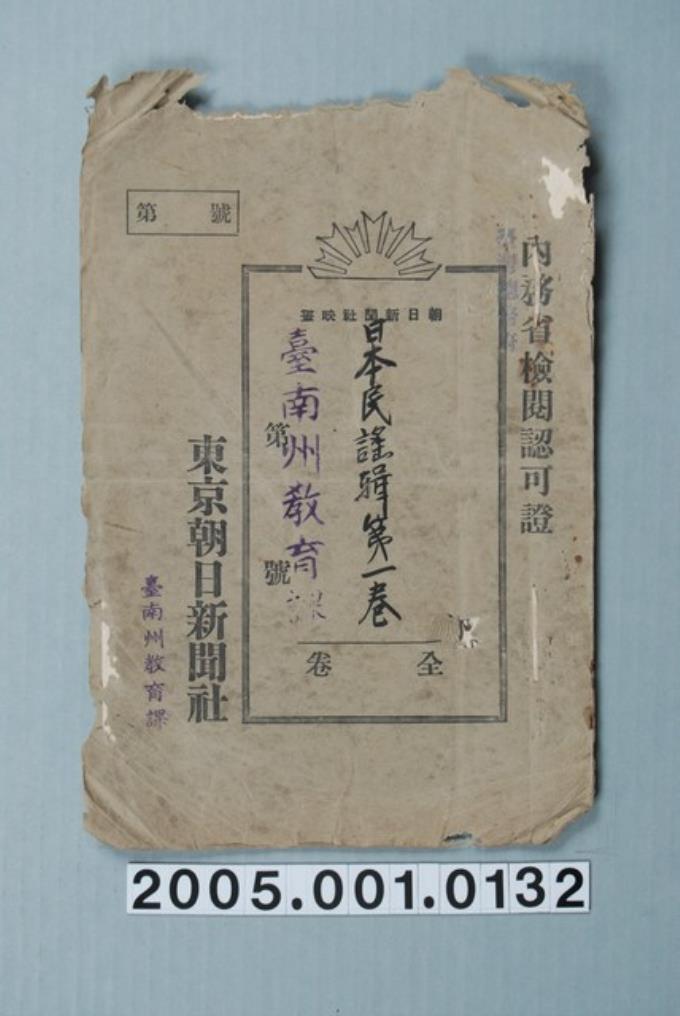 內務省檢閱認可證
臺灣總督府
第 號
朝日新聞社映畫
日本民謠輯第一卷
臺南州教育課
第 號
全 卷
東京朝日新聞社
臺南州教育課
2005.001.0132